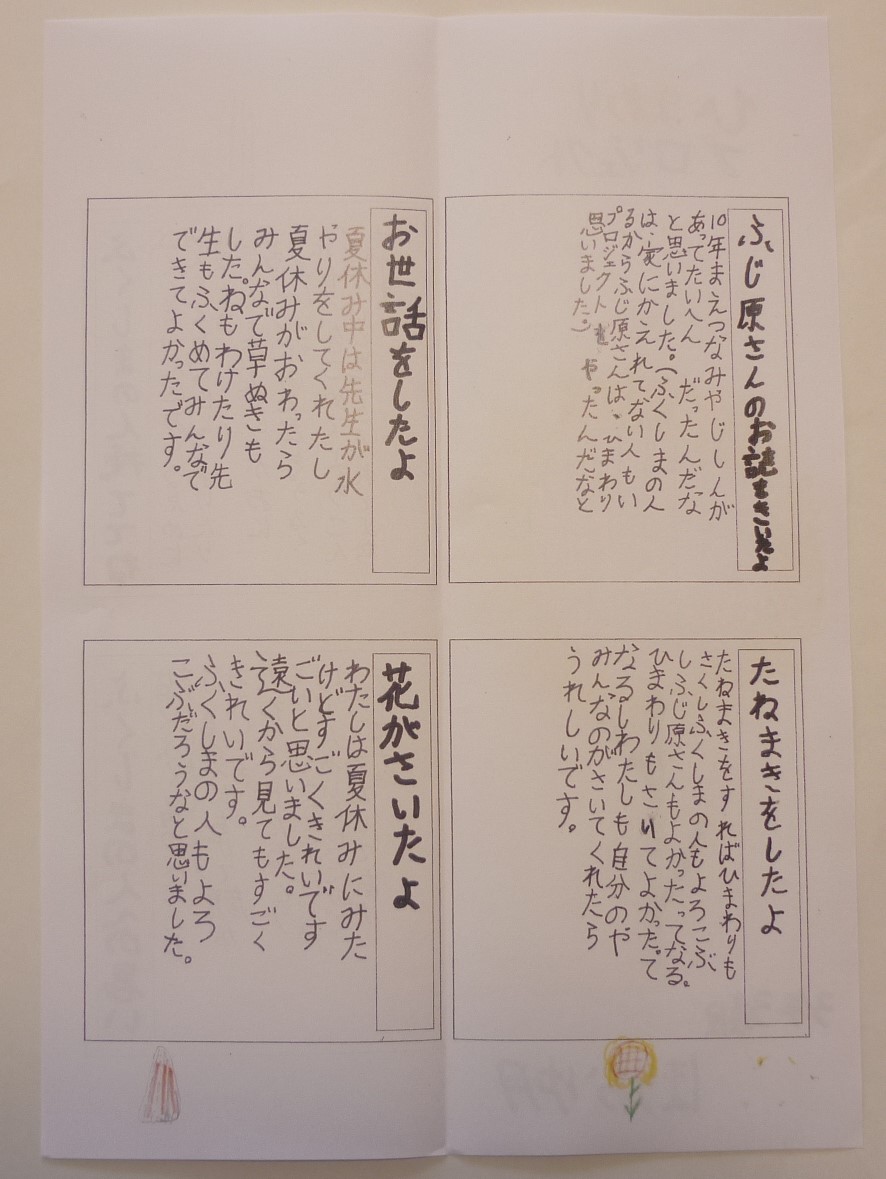 ふじ原さんのお話をきいたよ
10年まえつなみやじしんが
あってたいへんだったんだな
と思いました。(ふくしまの人
は、家にかえれてない人もい
るからふじ原さんは、ひまわり
プロジェクトをやったんだなと
思いました。)
たねまきをしたよ
たねまきをすればひまわりも
さくしふくしまの人もよろこぶ
しふじ原さんもよかったってなる。
ひまわりもさいてよかったって
なるしわたしも自分のや
みんなのがさいてくれたら
うれしいです。
お世話をしたよ
夏休み中は先生が水
やりをしてくれたし
夏休みがおわったら
みんなで草ぬきも
した。ねもわけたり先
生もふくめてみんなで
できてよかったです。
花がさいたよ
わたしは夏休みにみた
けどすごくきれいです
ごいと思いました。
遠くから見てもすごく
きれいです。
ふくしまの人もよろ
こぶだろうなと思いました。